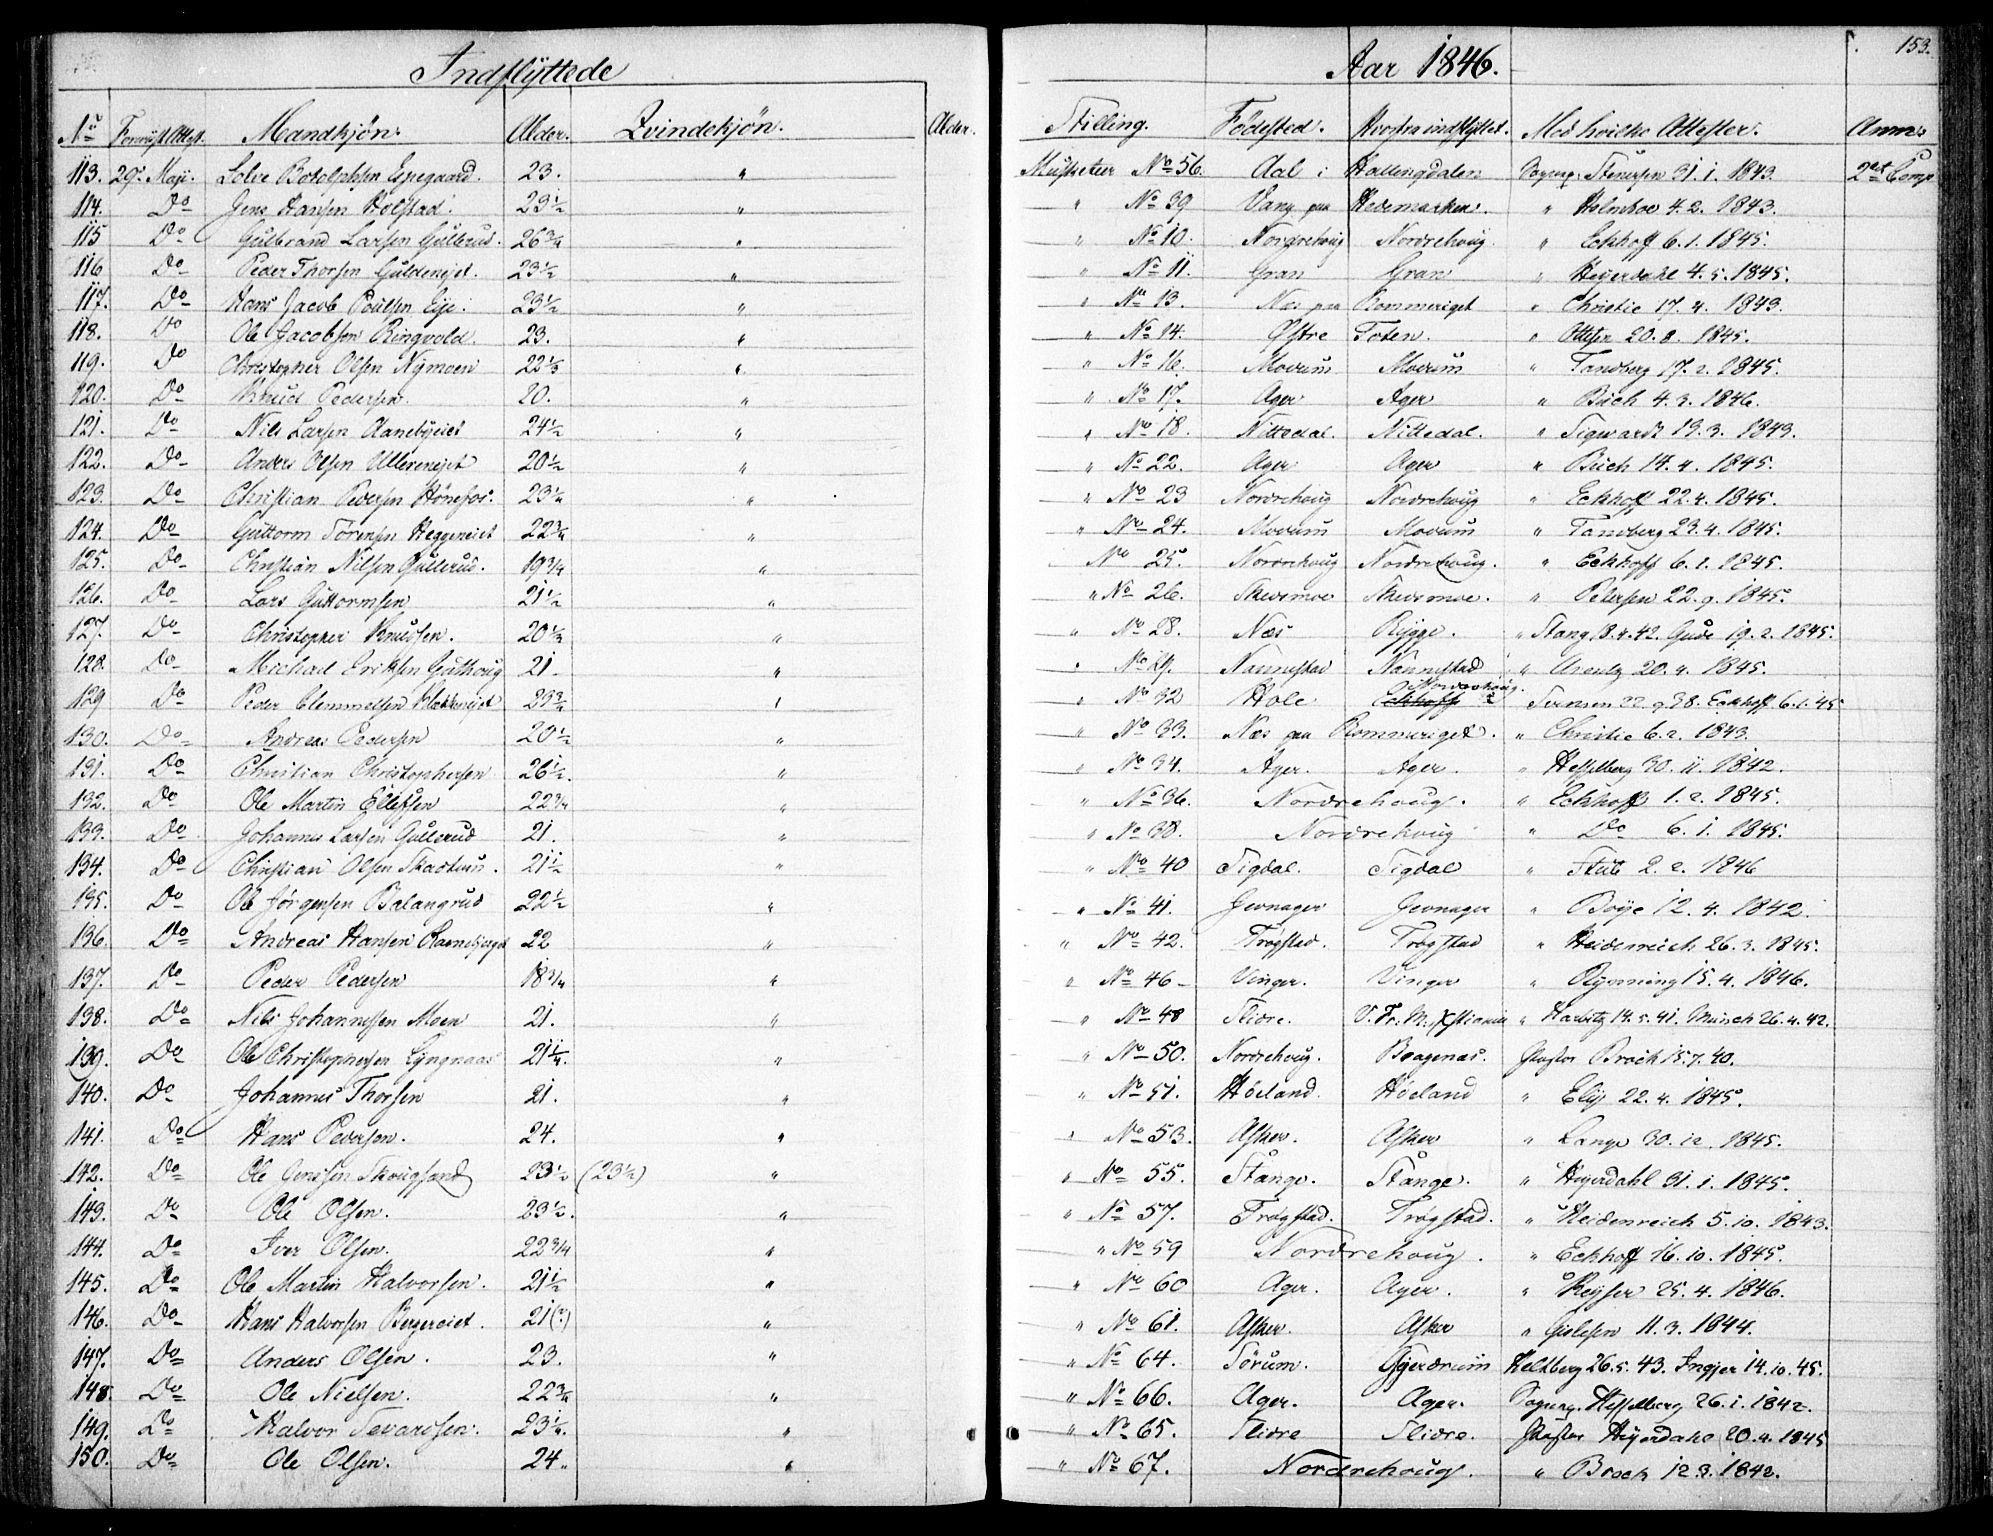 153.
Indflyttede Aar 1846.
No Mandkjön. Alder. Qvindekjön. Alder. Stilling. Födested. Hvorfra indflyttet. Med hvilke Attester. Anm:
113. 29. Maji. Botolphsen Espegaard. 23. " Musketeer No 56. Aal i Hallingdalen Sognep. Stenersen 31. 1. 1843. 2det Comp
114. Do Jens Hansen Holstad. 23½ " " No 39 Vang paa Hedemarken. " Holmboe 4. 2. 1843.
115 Do Gulbrand Larsen Gullerud. 26¾ " " No 10. Nordrehoug Nordrehoug. " Eckhoff 6. 1. 1845.
116 Do Peder Thorsen Guldenejet. 23½ " " No 11. Gran Gran " Heyerdahl 4. 5. 1845.
117. Do Hans Jacob Poulsen Eje. 23½ " " No 13. Næs paa Rommeriget " Christie 17. 4. 1843.
118. Do Ole Jacobsen Ringvold. 23. " " No 14. Östre Toten. " 20. 8. 1845.
119. Do Christopher Olsen Nymoen 22⅓ " " No 16. Modum Modum " Tandberg 17. 2. 1845.
120. Do Knud Pedersen. 20. " " No 17. Ager Ager " Buch 4. 3. 1846.
121. Do Nils Larsen Aanebyeiet 24½ " " No 18. Nittedal. Nittedal. " Sigwardt 19. 3. 1843.
122. Do Anders Olsen Ullerenejet 20½ " " No 22. Ager Ager " Buch 14. 4. 1845.
123. Do Christian Pedersen Hönefos. 23¼ " " No 23 Nordrehoug Nordrehoug " Eckhoff 22. 4. 1845.
124. Do Guttorm Torensen Heggeneiet 22¾ " " No 24. Modum Modum " Tandberg 23. 4. 1845.
125. Do Christian Nilsen Gullerud. 19¾ " No 25. Nordrehoug Nordrehoug. " Eckhoff 6. 1. 1845.
126. Do Lars Guttormsen 21½ " " No 26. Skedsmoe Skedsmoe. " Petersen 22. 9. 1845.
127. Do Christopher Knudsen. 20⅓ " " No 28. Næs Rygge. " Stang 18. 4. 42. Gude 19. 2. 1845.
128. Do Michael Eriksen Guthoug 21. " " No 29. Nannestad Nannestad " Arentz 20. 4. 1845.
129 Do Peder Clemmetsen 23¾ " No 32 Hole Eckhoff Nordrehoug. Svensen 22. 9. 38. Eckhoff 6. 1. 45
130. Do Andreas Pedersen 20½ " " No 33. Næs paa Rommeriget. " Christie 6. 2. 1843.
131. Do Christian Christophersen 26½. " " No 34. Ager. Ager. " Hesselberg 30. 11. 1842.
132. Do Ole Martin Ellefsen 22¾ " " No 36. Nordrehoug. " Eckhoff 1. 2. 1845.
133. Do Johannes Larsen Gullerud 21. " " No 38. Nordrehoug " Do 6. 1. 1845.
134. Do Christian Olsen Skartum. 21½ " " No 40 Sigdal. Sigdal " Stub 2. 2. 1846
135. Do Ole Jörgensen Balangrud 22½ " " No 41. Jevnager Jevnager " Boije 12. 4. 1842.
136. Do Andreas Hansen 22 " " No 42. Trögsted. Trögstad " Heidenreich 26. 3. 1845.
137. Do Peder Pedersen 18¾ " " No 46 - Vinger. Vinger " Rynning 15. 4. 1846.
138. Do Nils Johannesen Moen 21. " " No 48 Slidre. V. Fr. M. Xstiania " Harbitz 14. 5. 41. Münch 26. 4. 42.
139. Do Ole Christophersen Lyngnaas 21¼. " " No 50. Nordrehoug. Bragenæs. Pastor Brock 15. 7. 40.
140. Do Johannes Thorsen 21. " " No 51. Höeland. Höeland " Elij 22. 4. 1845.
141. Do Hans Pedersen. 24. " " No 53. Asker. Asker " Lange 30. 12. 1845.
142. Do Ole Jenssen Skougsend 23½ (23½) " " No 55. Stange. Stange. " Heyerdahl 31. 1. 1845.
143. Do Ole Olsen. 23½. " " No 57. Trögstad. Trögstad. " Heidenreich 5. 10. 1843.
144. Do Iver Olsen. 22¾ " " No 59 Nordrehoug. " Eckhoff 16. 10. 1845.
145. Do Ole Martin Halvorsen. 21½ " " No 60 Ager. Ager. " Keyser 25. 4. 1846.
146. Do Hans Halvorsen Bergereiet. 21(?) " " No 61. Asker. Asker " Gislesen 11. 3. 1844.
147. Do Anders Olsen. 23. " " No 64. Sörum. Gjerdrum Heltberg 26. 5. 43. Ingier 14. 10. 45.
148. Do Ole Nielsen. 22¾ " " No 66. Ager. Ager. Sognep. Hesselberg 26. 1. 1842.
149. Do Halvor Sevardsen. 23¼. " " No 65. Slidre Slidre. Pastor Heyerdahl 20. 4. 1845
150. Do Ole Olsen. 24. " " No 67. Nordrehoug. " Brock 12. 3. 1842.